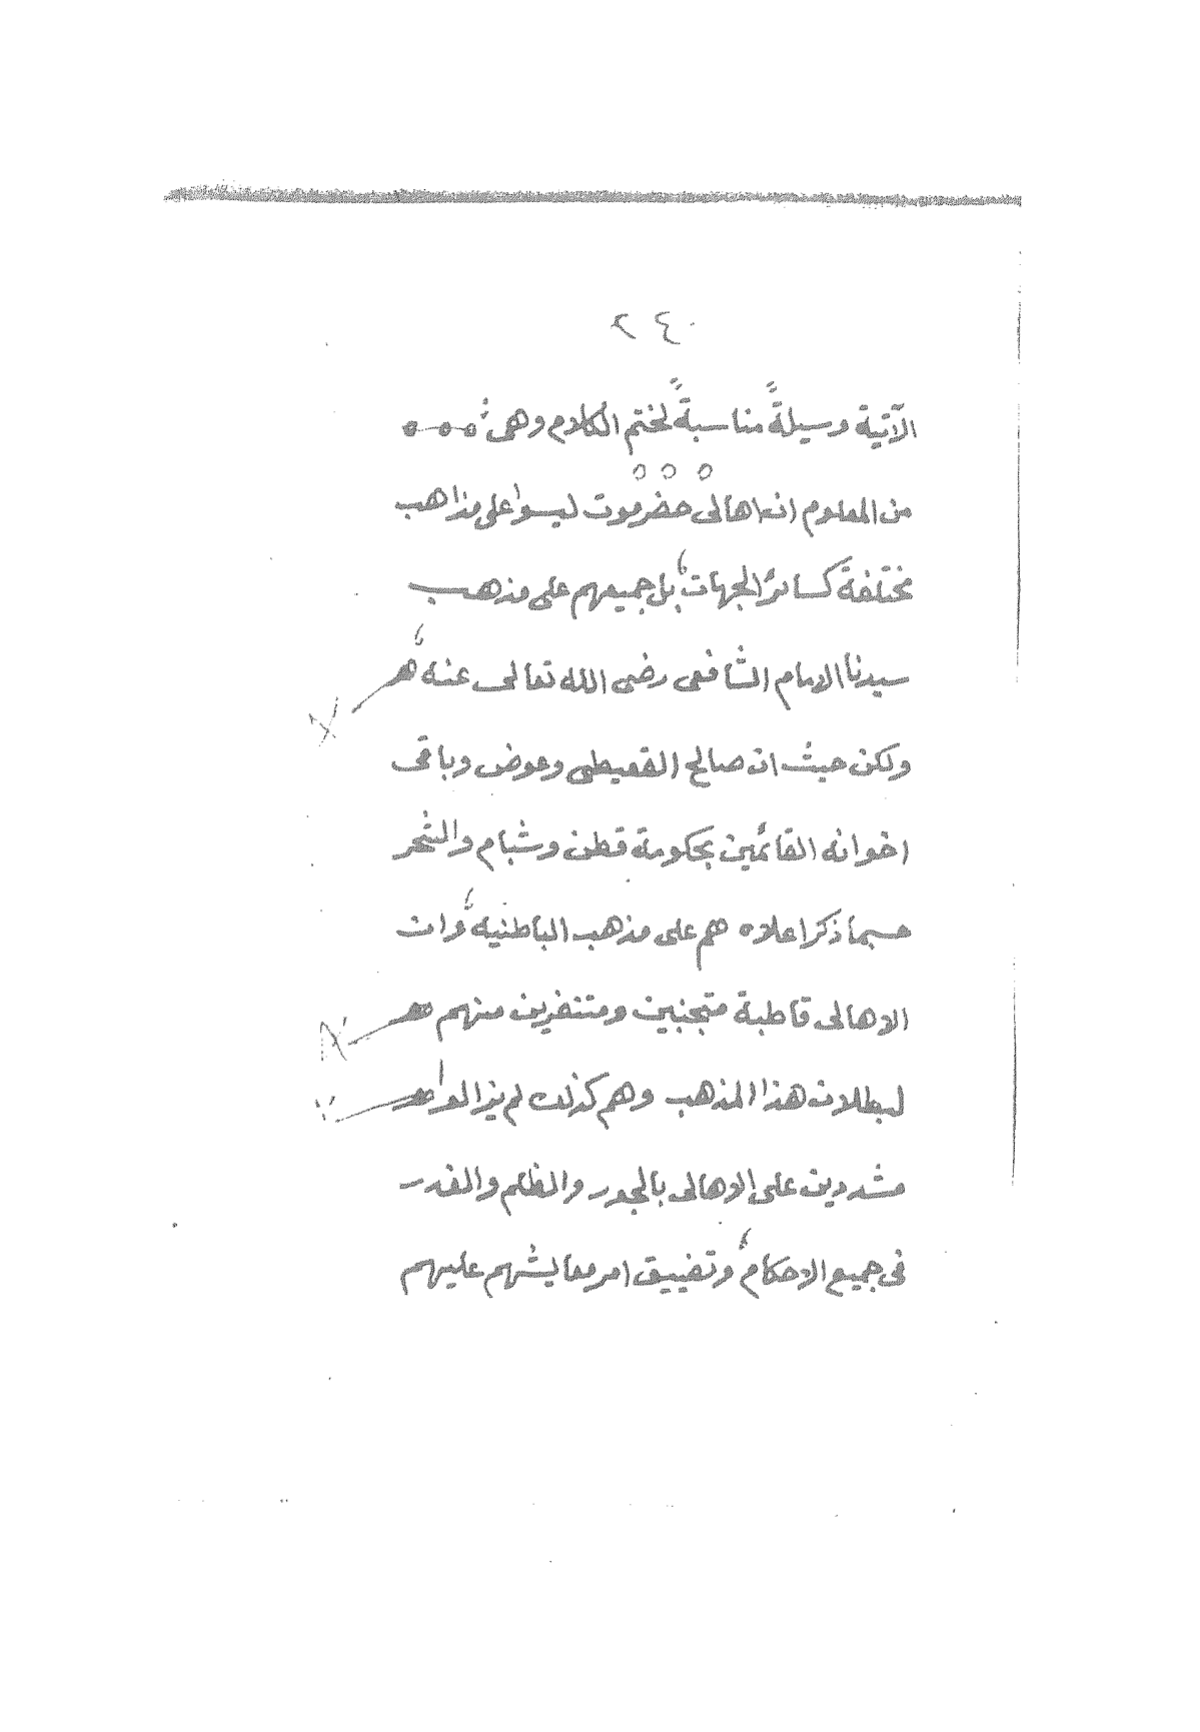 ٢٤٠
الآتية وسيلةً مناسبةً لختم الكلام وهى: ٥—٥—٥
٥ ٥ ٥
من المعلوم ان اهالى حضرموت ليسوا على مذاهب
مختلفة كسائر الجهات، بل جميعهم على مذهب
سيدنا الامام الشافعى رضى الله تعالى عنه، هـ
ولكن حيث ان صالح القعيطى وعوض وباقى
اخوانه القائمين بحكومة قطن وشبام والشحر
حسبما ذكر اعلاه هم على مذهب الباطنيه، وان
الاهالى قاطبة متجنبين ومتنفرين منهم هـ
لبطلان هذا المذهب وهم كذلك لم يزالوا هـ
مشددين على الاهالى بالجور والظلم والغدر
فى جميع الاحكام، وتضييق امر معايشهم عليهم